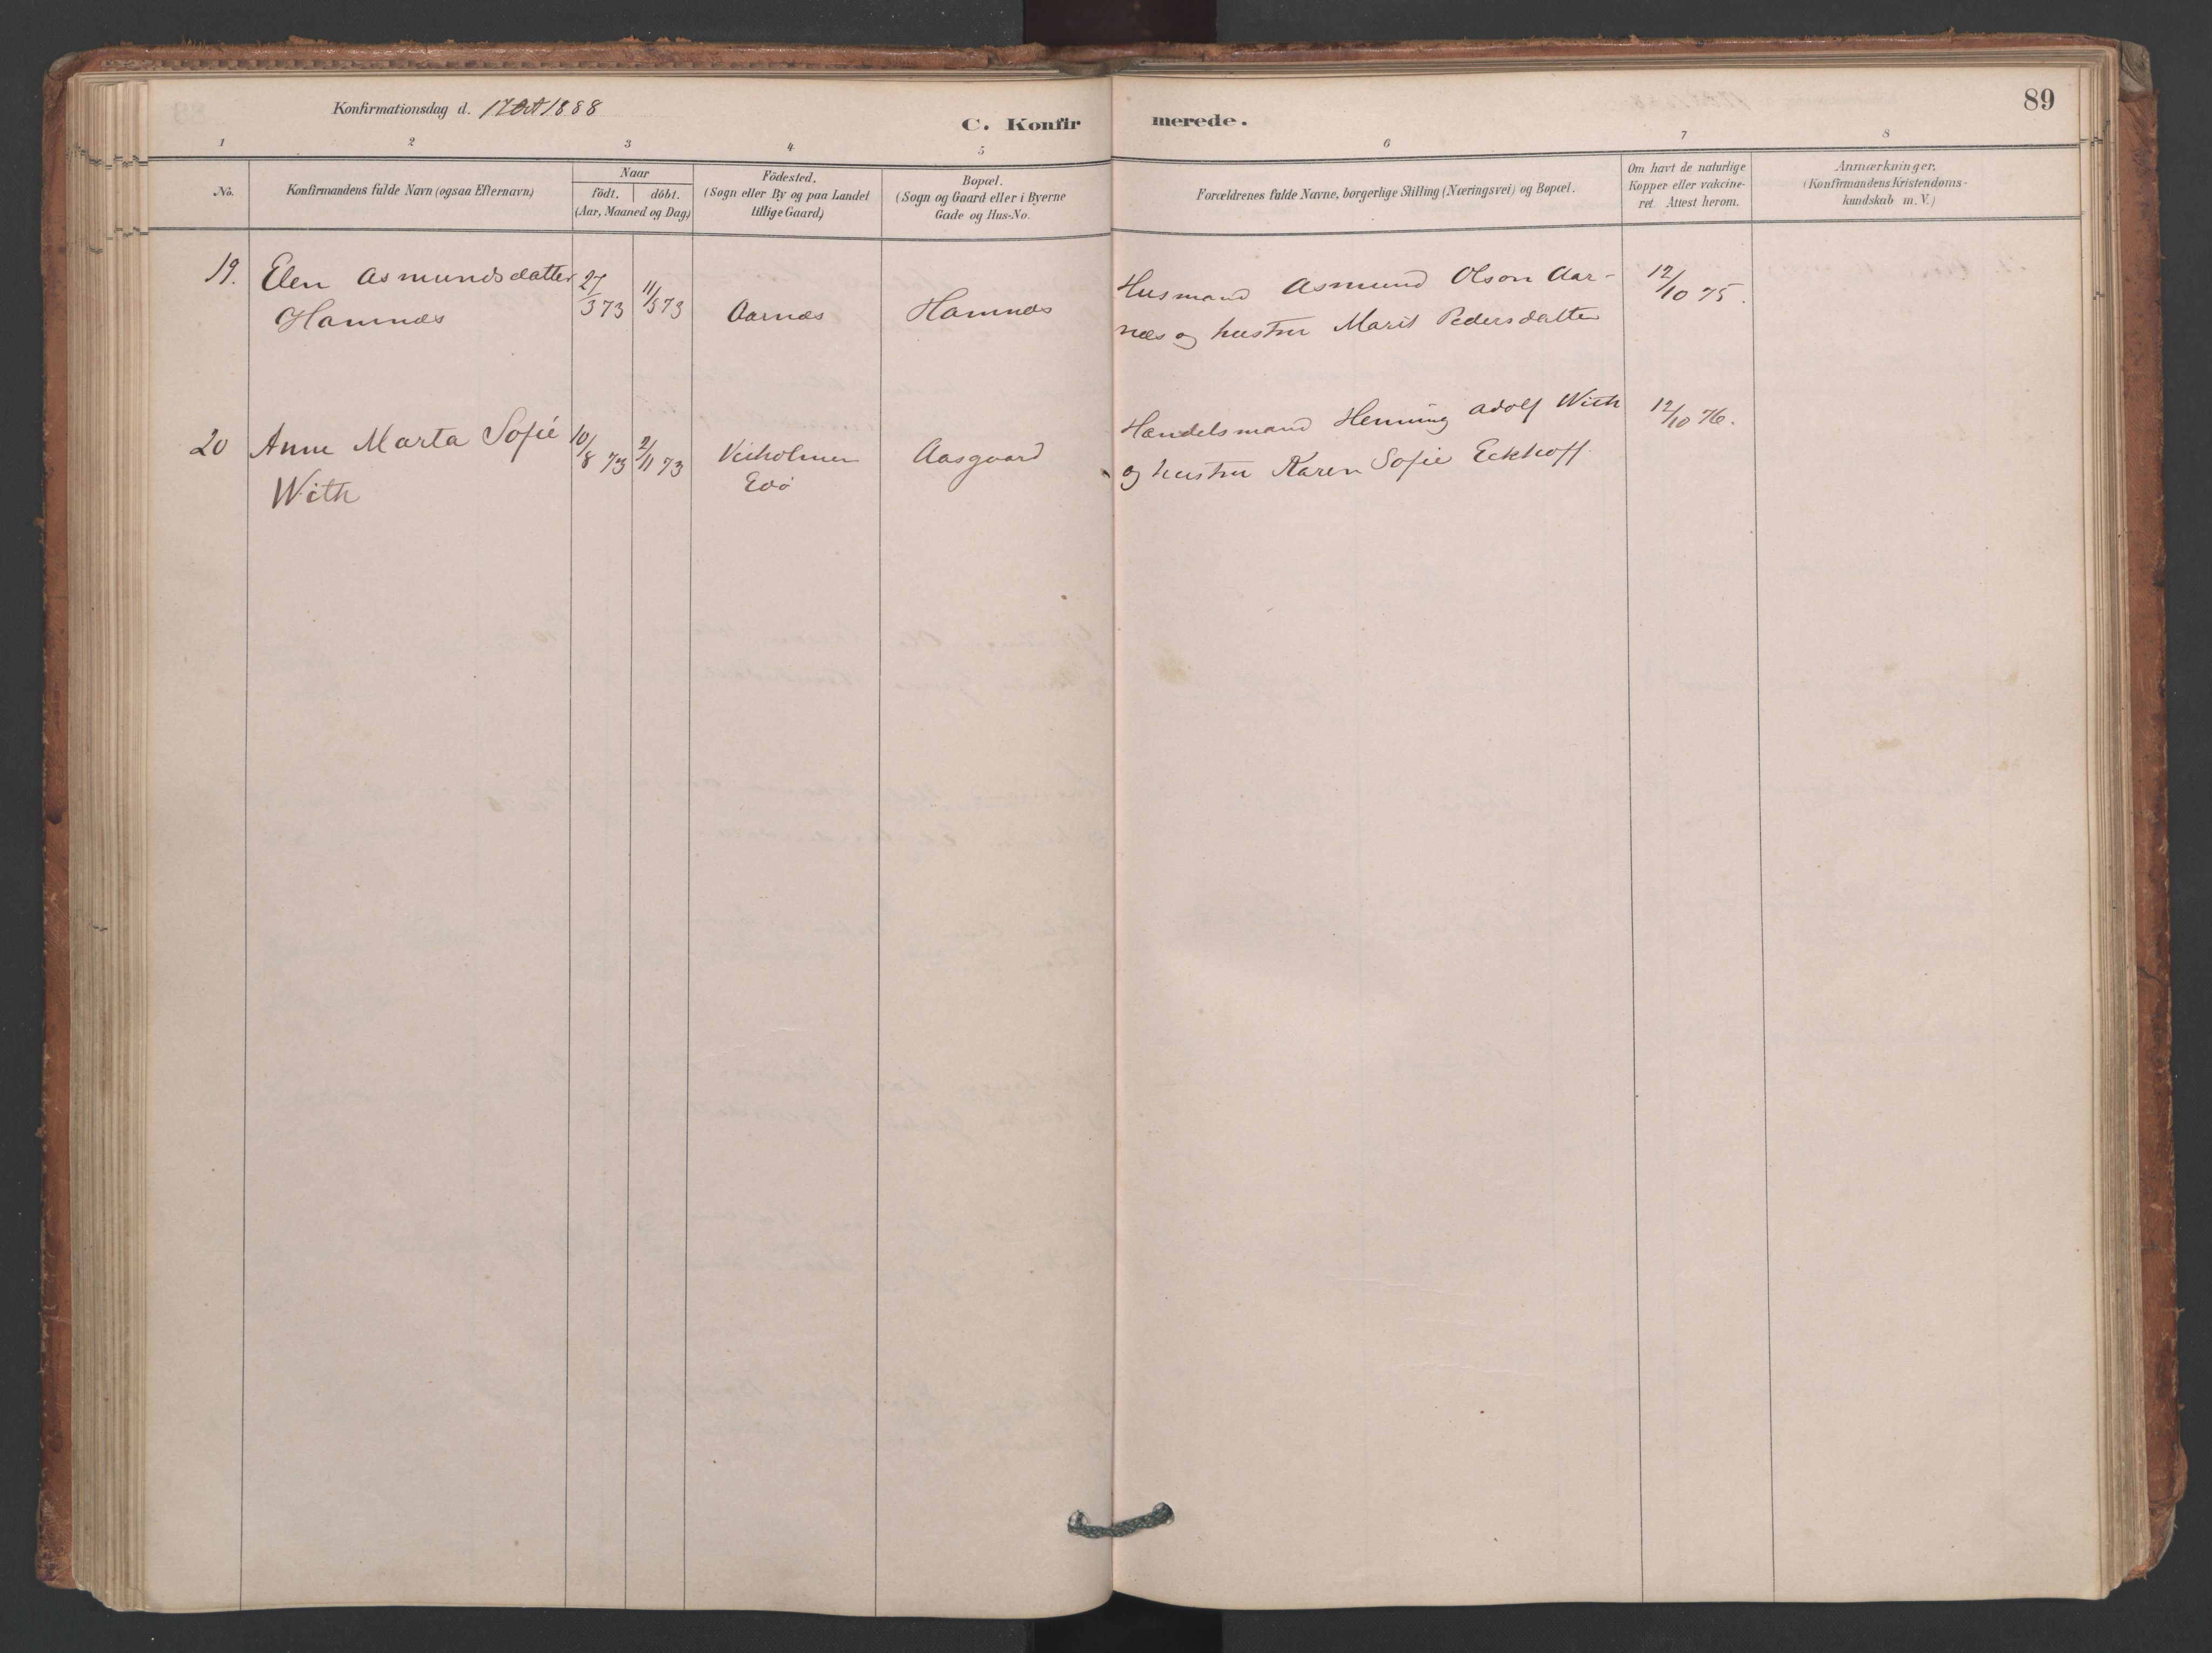 Konfirmationsdag d. 17 Oct 1888
C. Konfir merede.
89
1 2 3 4 5 6 7 8
No.
Konfirmandens fulde Navn (ogsaa Efternavn)
Naar
födt. döbt.
(Aar, Maaned og Dag)
Födested.
(Sogn eller By og paa Landet
tillige Gaard)
Bopæl.
(Sogn og Gaard eller i Byerne
Gade og Hus-No.
Forældrenes fulde Navne, borgerlige Stilling (Næringsvei) og Bopæl.
Om havt de naturlige
Kopper eller vakcine-
ret. Attest herom.
Anmærkninger,
(Konfirmandens Kristendoms-
kundskab m. V.)
19. Elen Asmundsdatter 27/3 73 11/5 73 Aarnæs Hamnæs Husmand Asmund Olson Aar- 12/10 75.
Hamnæs næs og hustru Marit Pedersdatter
20 Anne Marta Sofie 10/8 73 2/11 73 Veiholmen Aasgaard Handelsmand Henning Adolf With 12/10 76.
With Edö og hustru Karen Sofie Eckhoff